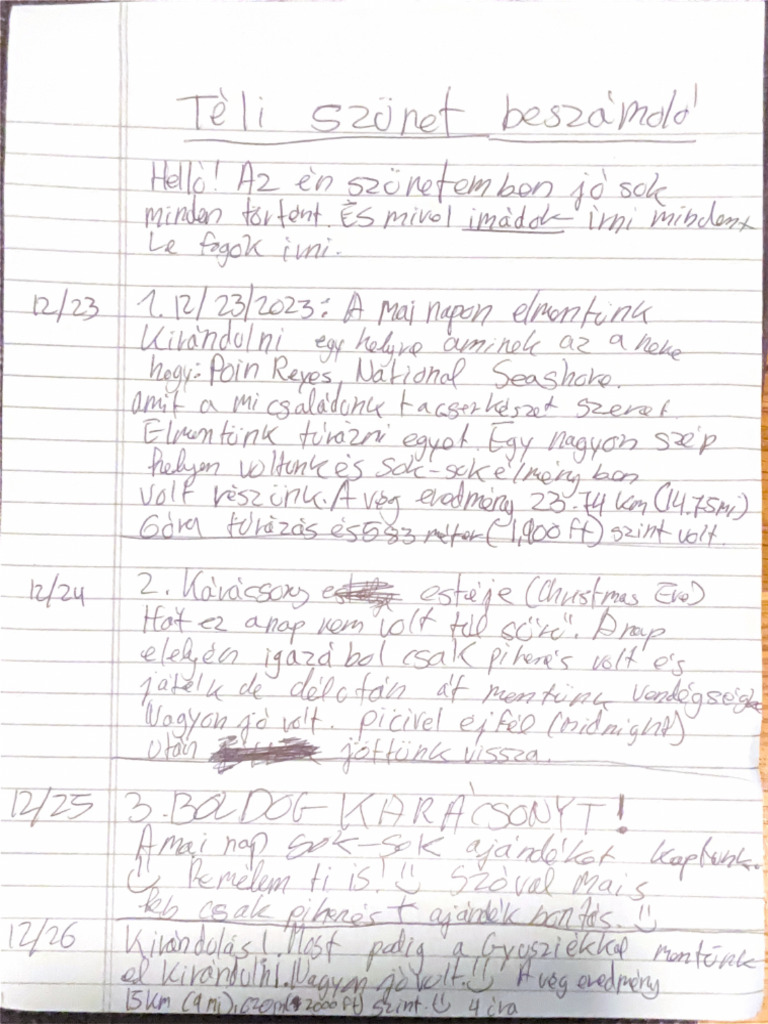 Téli szünet beszámoló
Helló! Az én szünetemben jó sok
minden történt. És mivel imádok írni mindent
le fogok írni.
12/23 1. 12/23/2023: A mai napon elmentünk
kirándulni egy helyre aminek az a neve
hogy: Poin Reyes National Seashore.
amit a mi családunk + a cserkészet szeret.
Elmentünk túrázni egyet. Egy nagyon szép
helyen voltunk és sok-sok élmény ben
volt részünk. A vég eredmény 23.74 km (14.75mi)
6óra túrázás és 583 méter (1,900 ft) szint volt.
12/24 2. Karácsony estéje (Christmas Eve)
Hát ez a nap nem volt túl sűrű. A nap
elején igazából csak pihenés volt és
játék de délután át mentünk vendégségbe
Nagyon jó volt. picivel éjfél (midnight)
után jöttünk vissza.
12/25 3. BOLDOG KARÁCSONYT!
A mai nap sok-sok ajándékot kaptunk.
Remélem ti is! Szóval mais
csak pihenés + ajándék bontás.
12/26 Kirándulás! Most pedig a Gyusziékkal mentünk
el kirándulni. Nagyon jó volt. A vég eredmény
15km (9mi), 620m (2000ft) szint. 4 óra